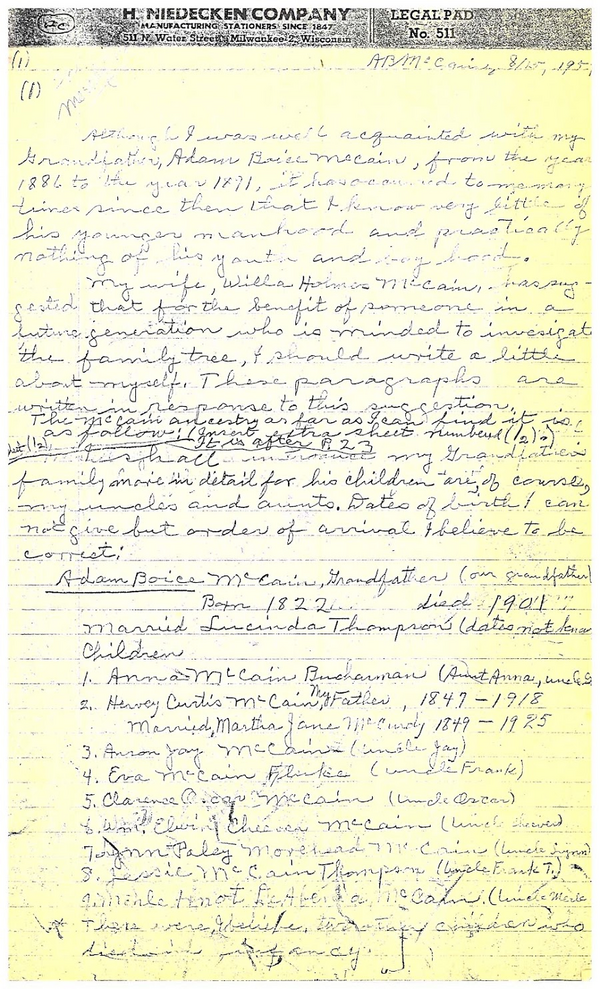 H. NIEDECKEN COMPANY
MANUFACTURING STATIONERS SINCE 1847
511 N. Water Street, Milwaukee 2, Wisconsin
LEGAL PAD
No. 511
(1) ABMcCain, 8/15, 195
(1)
Although I was well acquainted with my
Grandfather, Adam Boice McCain, from the year
1886 to the year 1891, it has occurred to me many
times since then that I know very little of
his younger manhood and practically
nothing of his youth and boy hood.
My wife, Willa Holmes McCain, has sug-
gested that for the benefit of someone in a
future generation who is minded to invesigat
the family tree, I should write a little
about myself. These paragraphs are
written in response to this suggestion.
The McCain ancestry as far as I can find it is
as follows: (Insert extra sheet numbered (1/2)
It is after P. 23
I shall my Grandfather's
family more in detail for his children are, of course,
my uncles and aunts. Dates of birth I can
not give but order of arrival I believe to be
correct:
Adam Boice McCain, Grandfather (our grandfather)
Born 1822 died 1901
Married Lucinda Thompson (dates not know
Children
1. Anna McCain Bucharman (Aunt Anna, uncle
2. Hervey Curtis McCain, My Father, 1847 - 1918
Married, Martha Jane McCurdy 1849 - 1925
3. Anson Jay McCain (uncle Jay)
4. Eva McCain Fluke (uncle Frank)
5. Clarence Oscar McCain (Uncle Oscar)
6. Wm. Elwin Cheever McCain (Uncle Cheever)
7. Lynn Morehead McCain (Uncle Lynn)
8. Jessie McCain Thompson (Uncle Frank T.)
9. Merle McCain. (Uncle Merle
There were, I believe, two other children who
died in infancy.